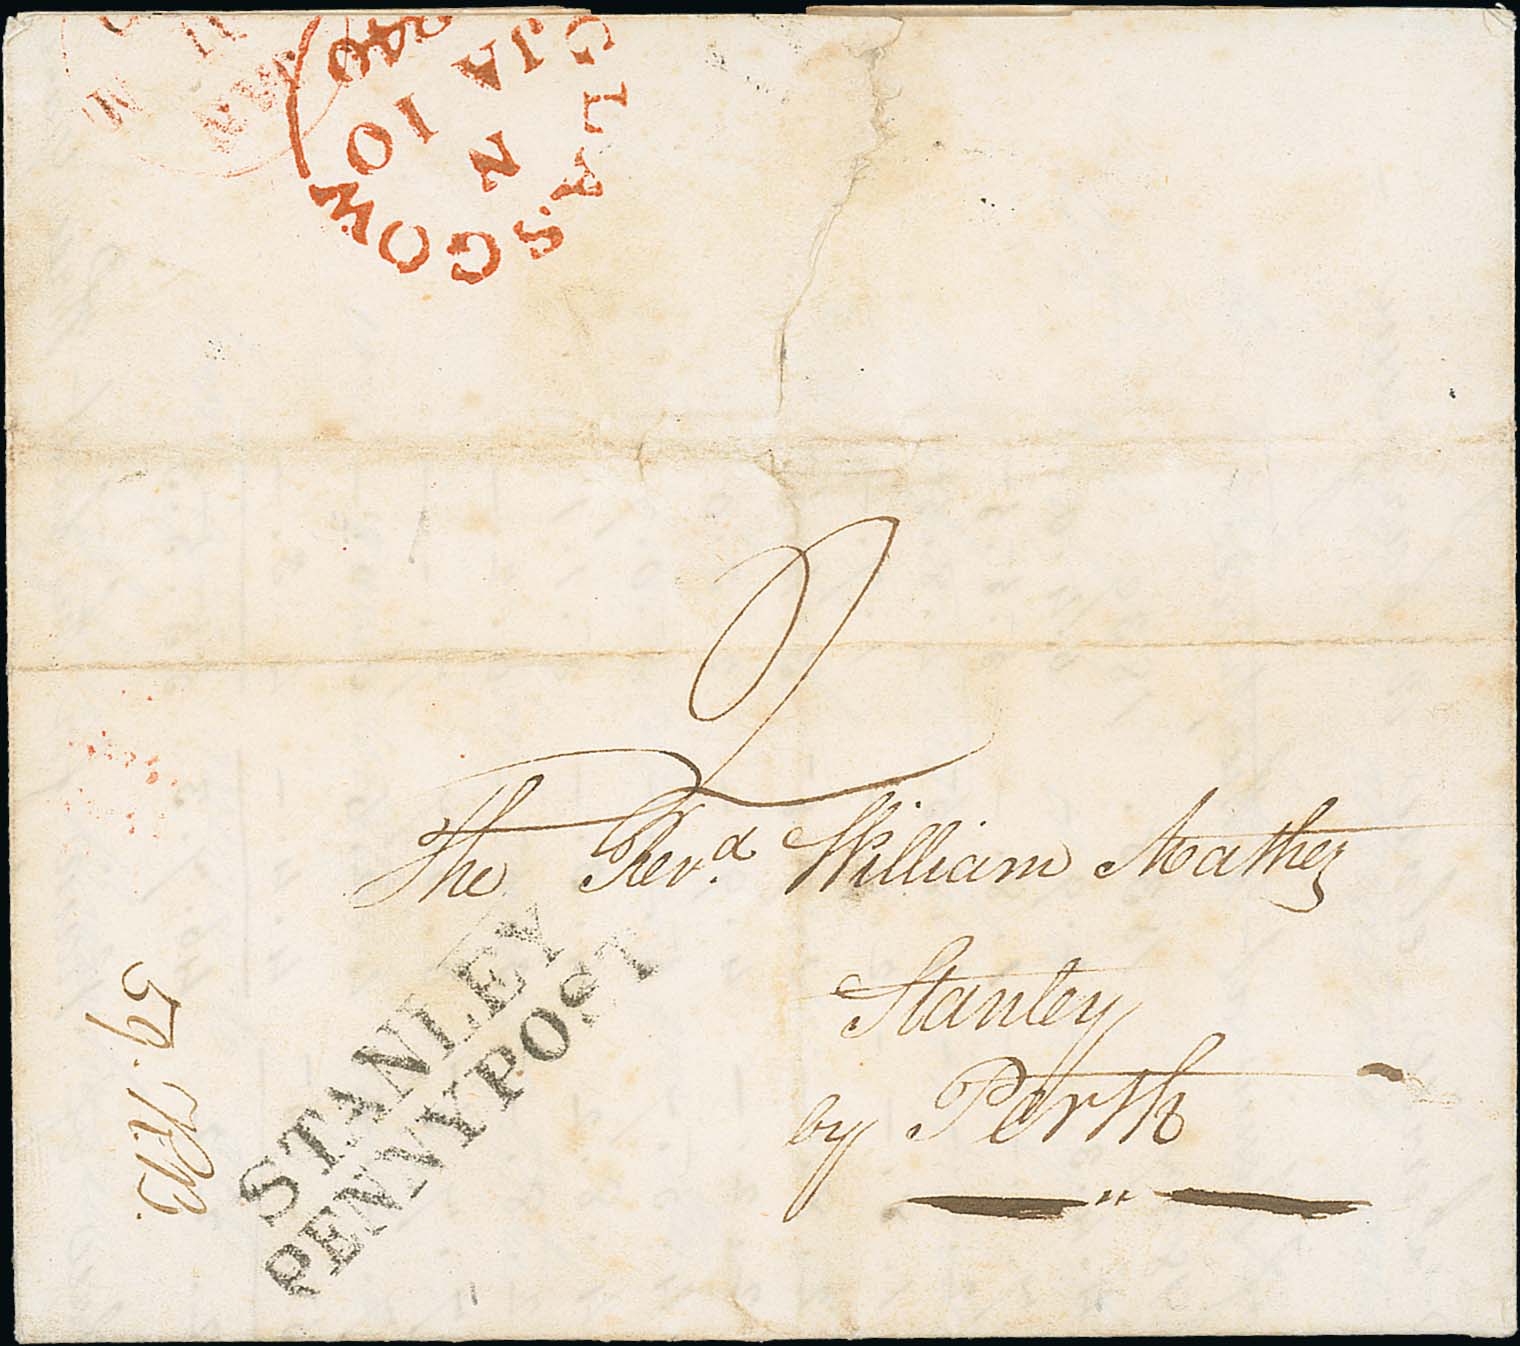 GLASGOW
N
JA 10
1840
M
11
2
The Rev.d William Mather
Stanley
by Perth
STANLEY
PENNY POST